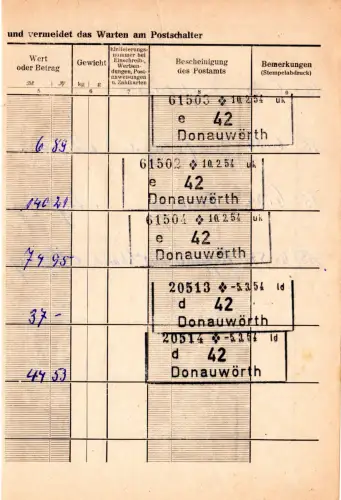 und vermeidet das Warten am Postschalter
Wert
oder Betrag
Gewicht
Einlieferungs-
nummer bei
Einschreib-,
Wertsen-
dungen, Post-
anweisungen
u. Zahlkarten
Bescheinigung
des Postamts
Bemerkungen
(Stempelabdruck)
kg g
5 6 7 8 9
61503 10.2.54 uk
e 42
Donauwörth
6 89
61502 10.2.54 uk
e 42
Donauwörth
140 21
61504 10.2.54 uk
e 42
Donauwörth
74 95
20513 -5.3.54 ld
d 42
Donauwörth
37 -
20514 -5.3.54 ld
d 42
Donauwörth
44 53